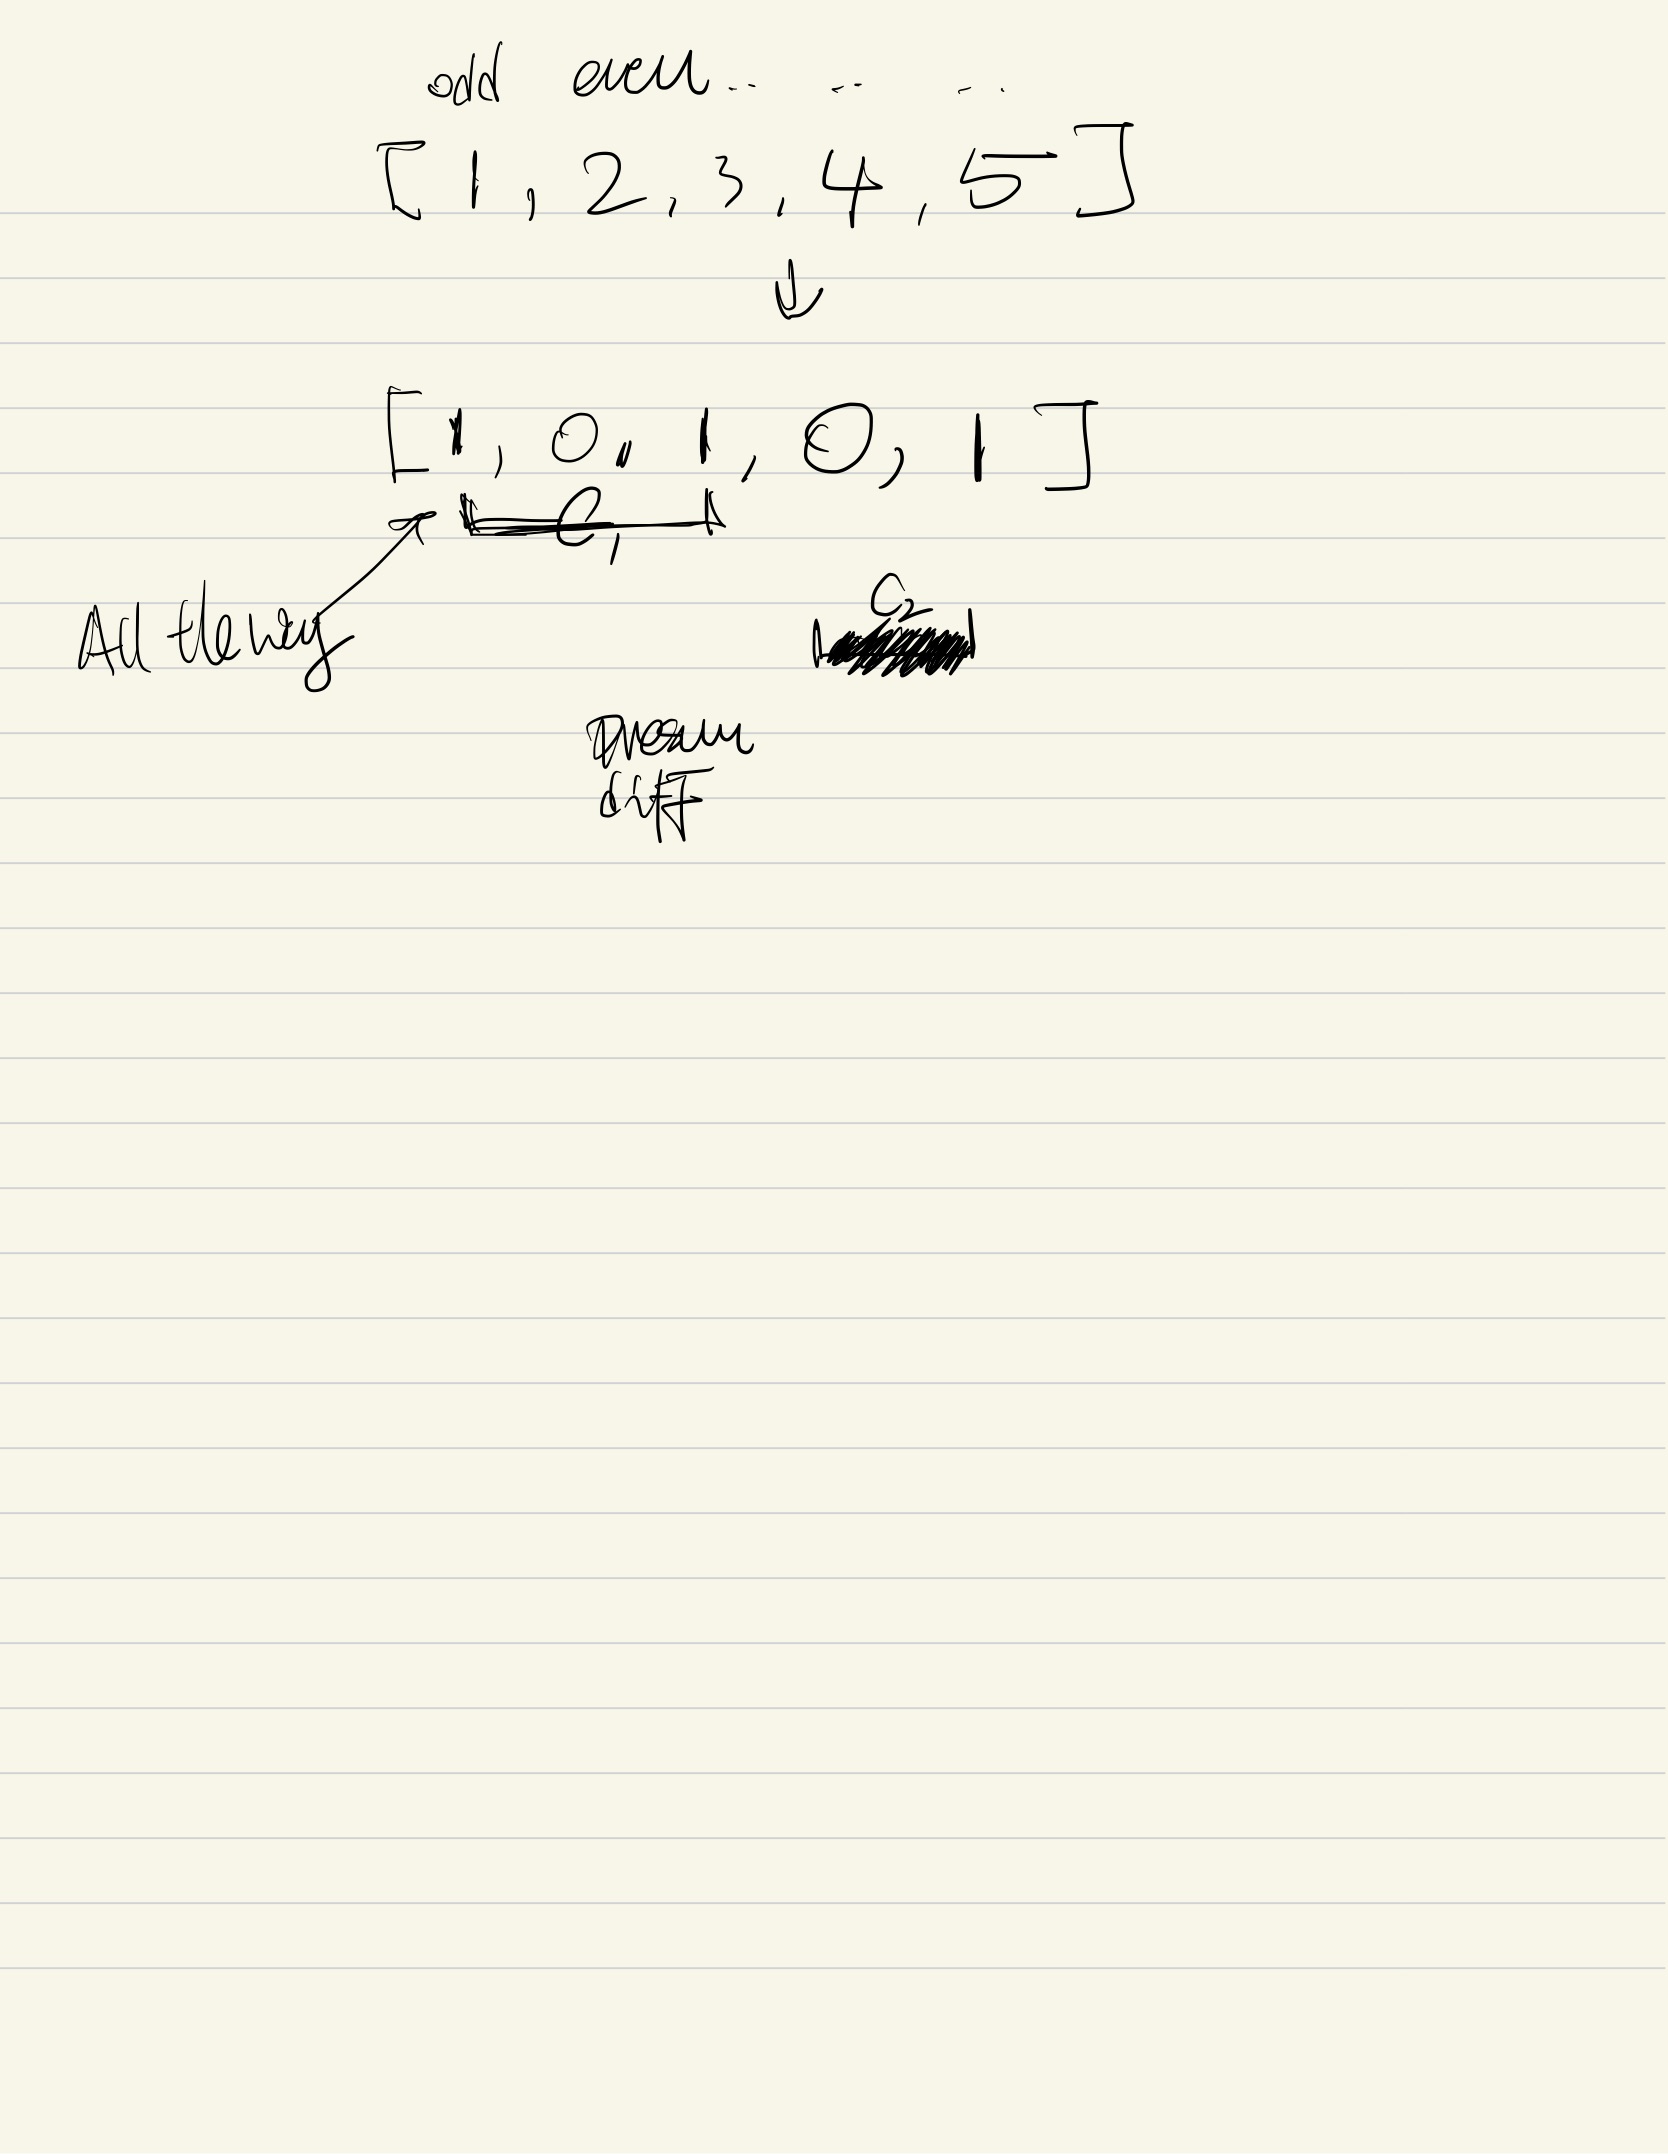 odd even .. .. ..
[ 1 , 2 , 3 , 4 , 5 ]
↓
[ 1 , 0 , 1 , 0 , 1 ]
C1
All the way
C2
Presum
diff